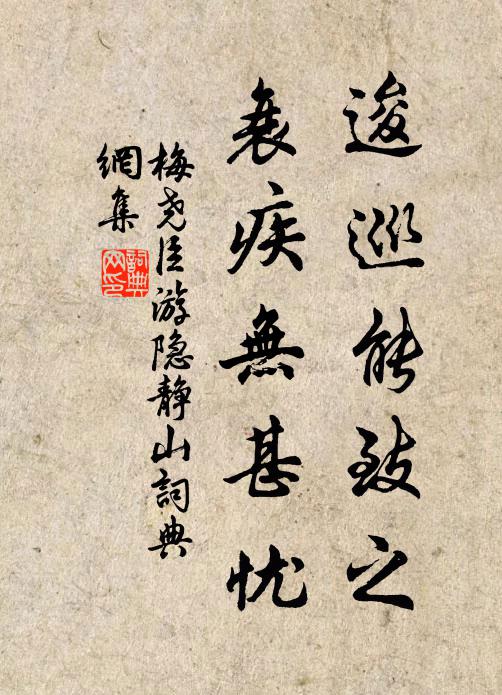 逡巡能致之
衰疾無甚忧
梅尧臣游隐静山詞典
網集
詞典网印